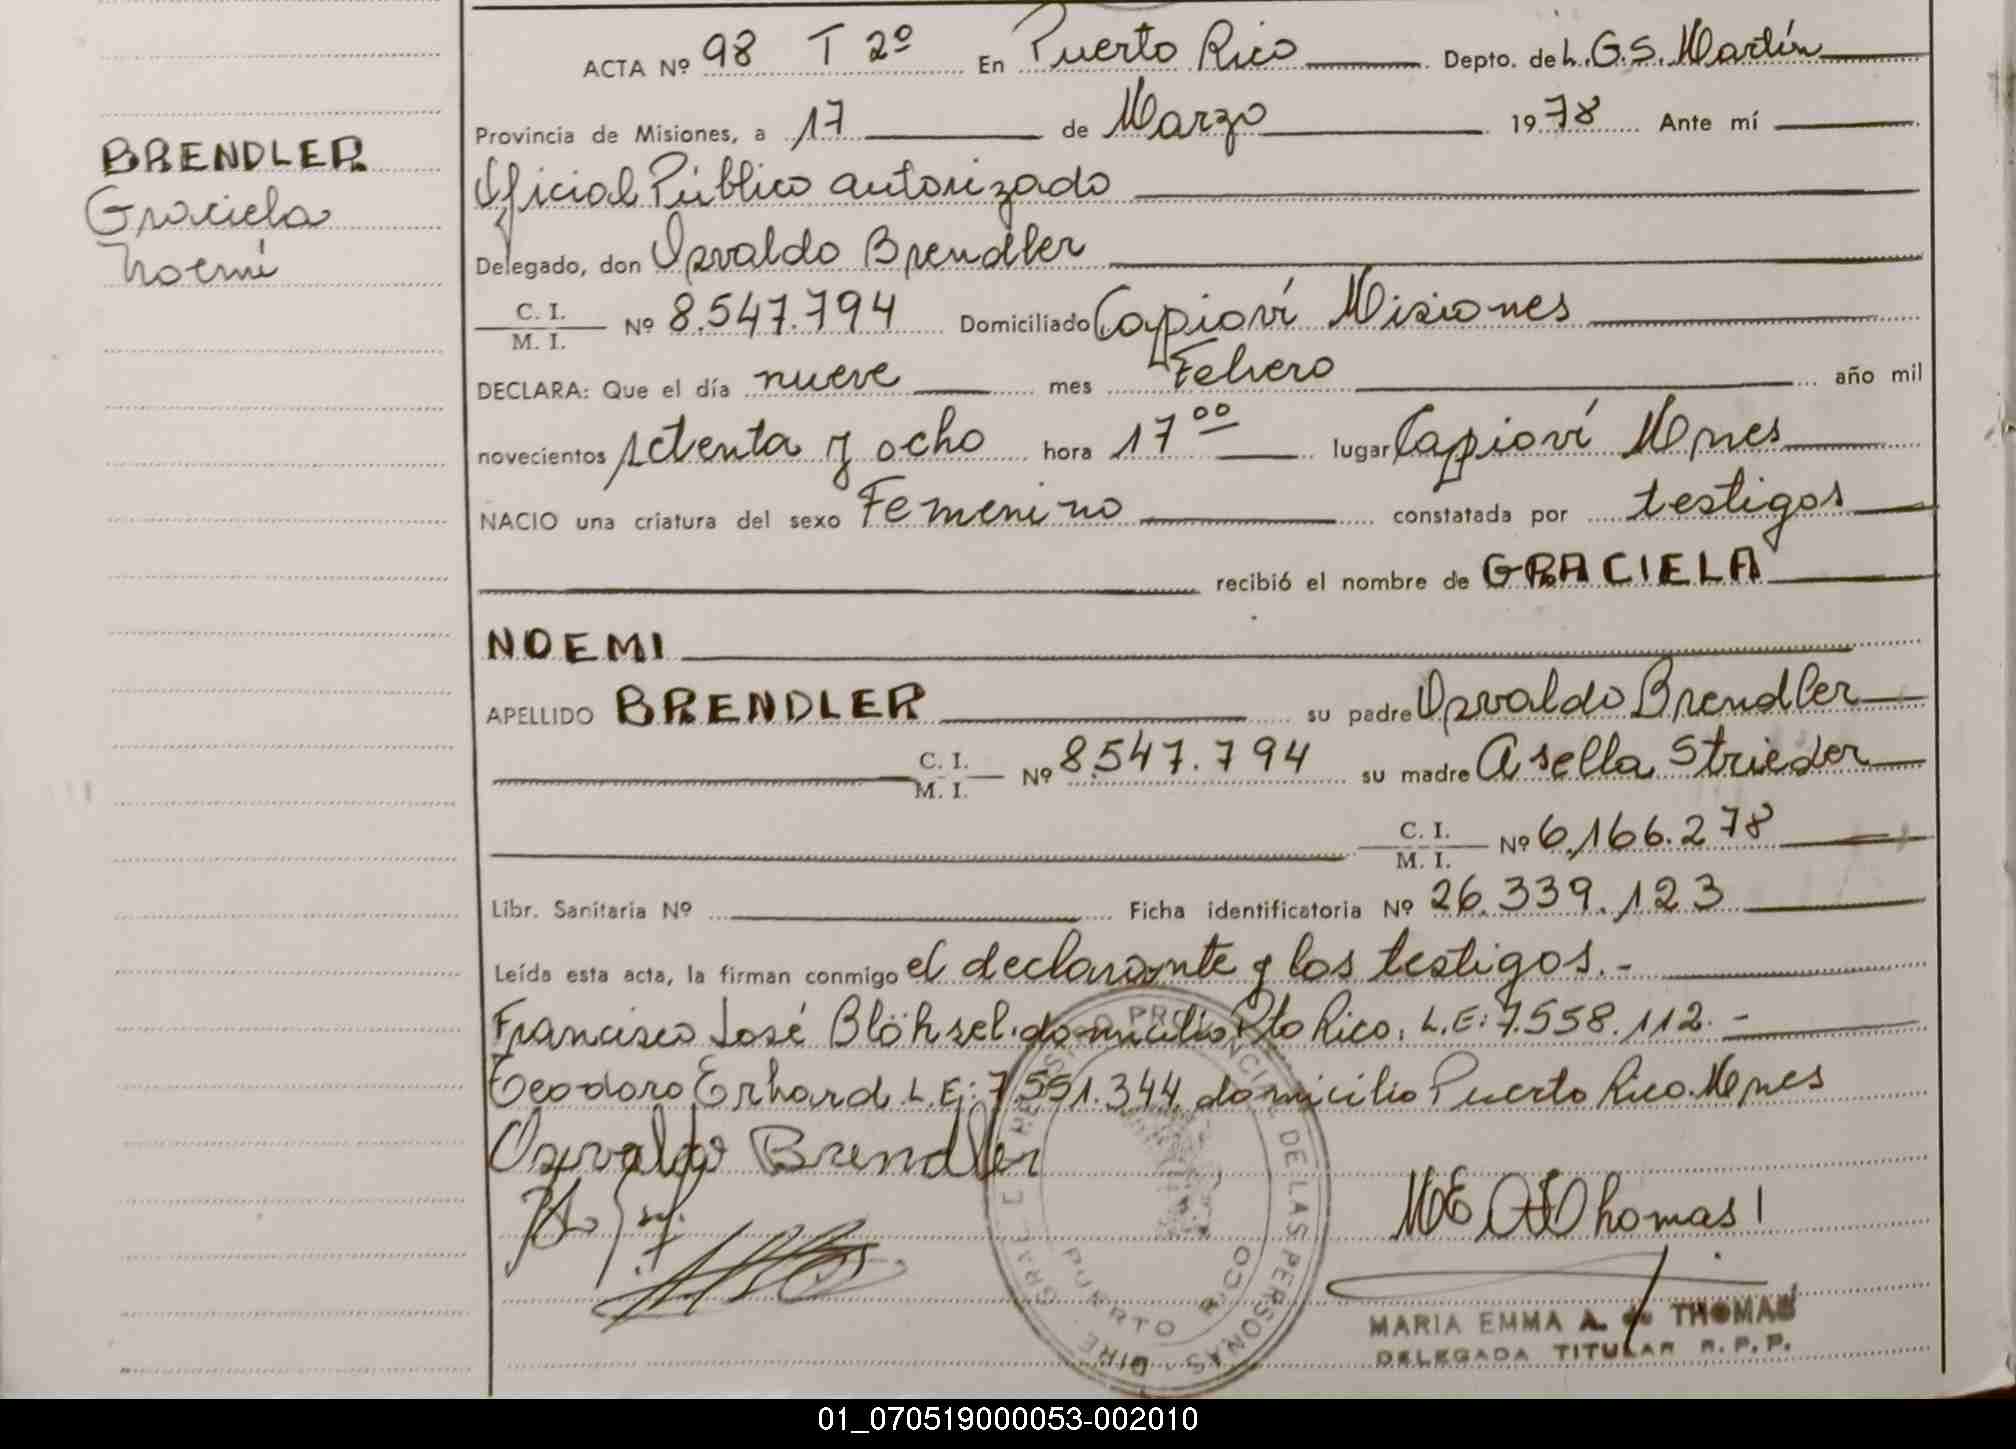 ACTA Nº 98 T 2º En Puerto Rico Depto. de L. G. S. Martín
Provincia de Misiones, a 17 de Marzo 1978 Ante mí
BRENDLER
Graciela
Noemí
Oficial Público autorizado
Delegado, don Osvaldo Brendler
C. I.
M. I. Nº 8.547.794 Domiciliado Capioví Misiones
DECLARA: Que el día nueve mes Febrero año mil
novecientos setenta y ocho hora 17 00 lugar Capioví Mnes
NACIO una criatura del sexo Femenino constatada por testigos
recibió el nombre de GRACIELA
NOEMI
APELLIDO BRENDLER su padre Osvaldo Brendler
C. I.
M. I. Nº 8.547.794 su madre Asella Strieder
C. I.
M. I. Nº 6.166.278
Libr. Sanitaria Nº Ficha identificatoria Nº 26.339.123
Leída esta acta, la firman conmigo el declarante y los testigos.-
Francisco José Blöhsel. domicilio Pto Rico. L.E: 7.558.112.-
Teodoro Erhard L.E: 7.551.344 domicilio Puerto Rico Mnes
Osvaldo Brendler
M E A d Thomas
MARIA EMMA A. de THOMAS
DELEGADA TITULAR R. P. P.
REGISTRO PROVINCIAL DE LAS PERSONAS
PUERTO RICO
01_070519000053-002010